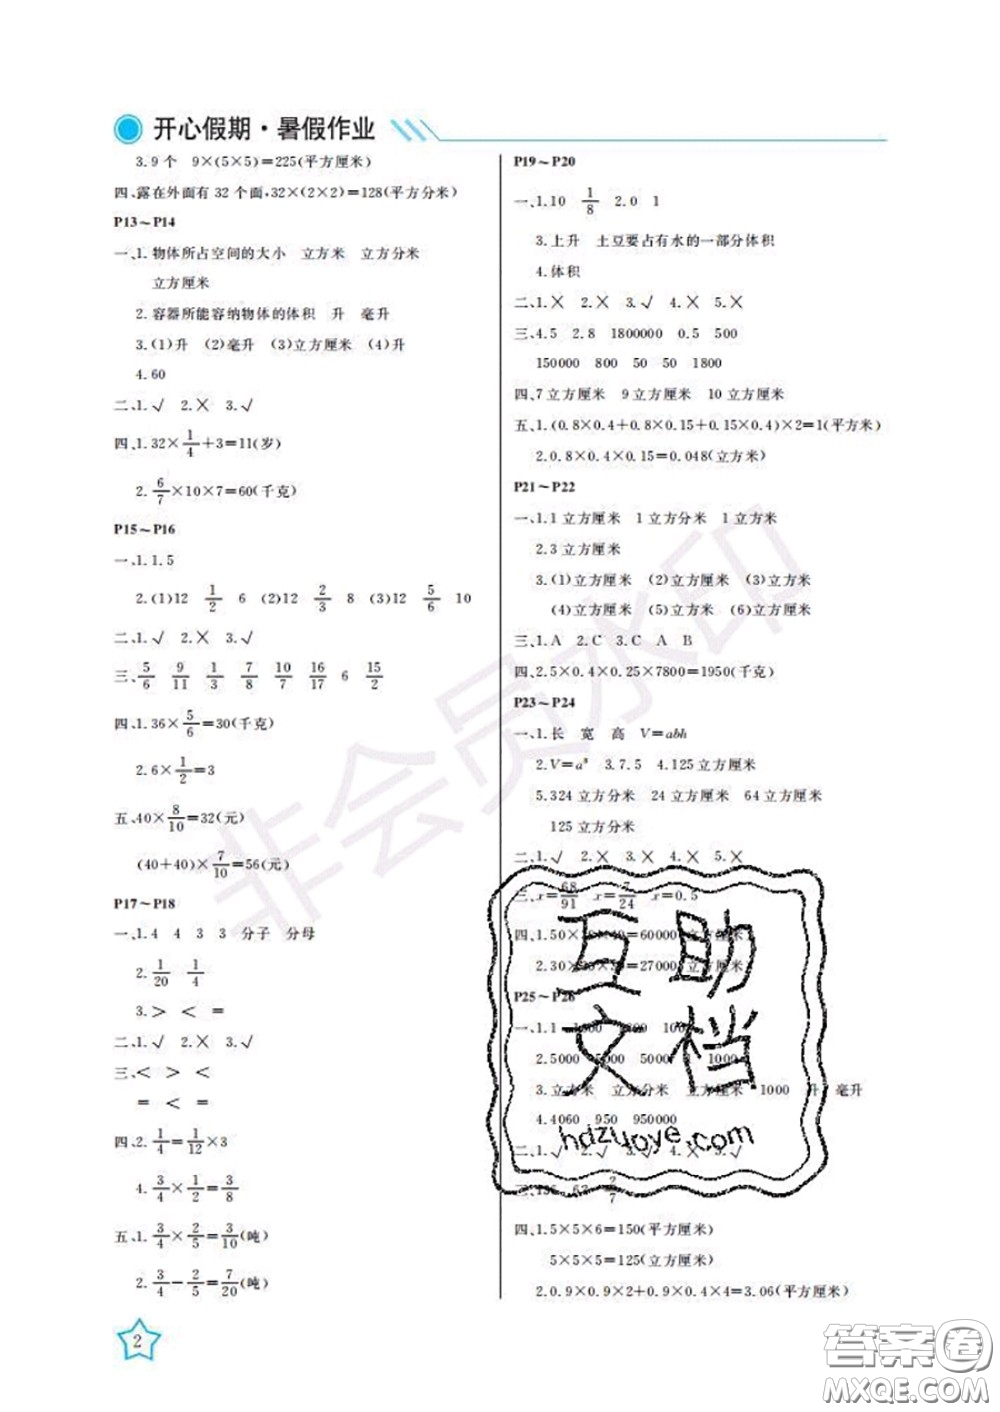 开心假期·暑假作业
3.9个 9×(5×5)=225(平方厘米)
四、露在外面有32个面,32×(2×2)=128(平方分米)
P13~P14
一、1.物体所占空间的大小 立方米 立方分米
立方厘米
2.容器所能容纳物体的体积 升 毫升
3.(1)升 (2)毫升 (3)立方厘米 (4)升
4.60
二、1.√ 2.× 3.√
四、1.32×1/4+3=11(岁)
2.6/7×10×7=60(千克)
P15~P16
一、1.1.5
2.(1)12 1/2 6 (2)12 2/3 8 (3)12 5/6 10
二、1.√ 2.× 3.√
三、5/6 9/11 1/3 7/8 10/7 16/17 6 15/2
四、1.36×5/6=30(千克)
2.6×1/2=3
五、40×8/10=32(元)
(40+40)×7/10=56(元)
P17~P18
一、1.4 4 3 3 分子 分母
2.1/20 1/4
3.> < =
二、1.√ 2.× 3.√
三、< > <
= < =
四、2.1/4=1/12×3
4.3/4×1/2=3/8
五、1.3/4×2/5=3/10(吨)
2.3/4-2/5=7/20(吨)
2
P19~P20
一、1.10 1/8 2.0 1
3.上升 土豆要占有水的一部分体积
4.体积
二、1.× 2.× 3.√ 4.× 5.×
三、4.5 2.8 1800000 0.5 500
150000 800 50 50 1800
四、7立方厘米 9立方厘米 10立方厘米
五、1.(0.8×0.4+0.8×0.15+0.15×0.4)×2=1(平方米)
2.0.8×0.4×0.15=0.048(立方米)
P21~P22
一、1.1立方厘米 1立方分米 1立方米
2.3立方厘米
3.(1)立方厘米 (2)立方分米 (3)立方米
(4)立方厘米 (5)立方米 (6)立方厘米
三、1.A 2.C 3.C A B
四、2.5×0.4×0.25×7800=1950(千克)
P23~P24
一、1.长 宽 高 V=abh
2.V=a³ 3.7.5 4.125立方厘米
5.324立方分米 24立方厘米 64立方厘米
125立方分米
二、1.√ 2.× 3.× 4.× 5.×
三、x=68/91 x=7/24 x=0.5
四、1.50× =60000(立方厘米)
2.30× =27000(立方厘米)
P25~P26
一、1.1
2.5000 5000 1000
3.立方米 立方分米 立方厘米 1000 升 毫升
4.4060 950 950000
二、1.√ 3.√ 4.×
三、 2/7
四、1.5×5×6=150(平方厘米)
5×5×5=125(立方厘米)
2.0.9×0.9×2+0.9×0.4×4=3.06(平方厘米)
非会员水印
互助
文档
hdzuoye.com
答案圈
MXQE.COM